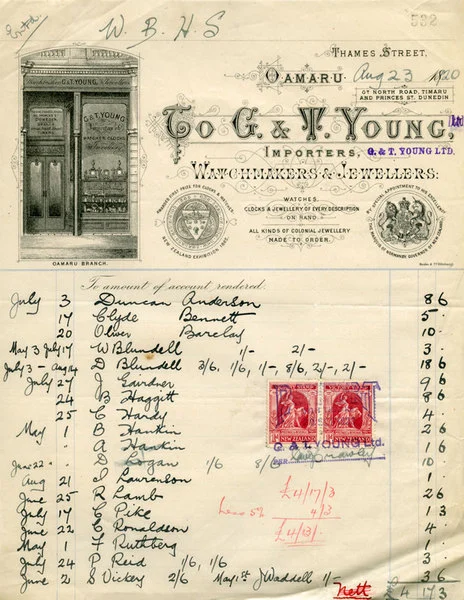 Entd.
W. B. H. S
532
THAMES STREET,
OAMARU Aug 23 1920
GT NORTH ROAD, TIMARU
AND PRINCES ST. DUNEDIN
G. & T. YOUNG, Importer
G & T. YOUNG
TO G. & T. YOUNG, Ltd
IMPORTERS, G. & T. YOUNG LTD.
WATCHMAKERS & JEWELLERS:
WATCHES,
CLOCKS & JEWELLERY OF EVERY DESCRIPTION
ON HAND
ALL KINDS OF COLONIAL JEWELLERY
MADE TO ORDER.
NEW ZEALAND EXHIBITION,
BY APPOINTMENT TO HIS EXCELLENCY
THE MARQUIS OF NORMANBY, GOVERNOR OF NEW ZEALAND
OAMARU BRANCH.
To amount of account rendered
July 3 Duncan Anderson 8 6
17 Clyde Bennett 5 -
20 Oliver Barclay 10 -
May 3 July 17 W Blundell 1/- 2/- 3 -
July 3 - Aug 14 D Blundell 3/6, 1/6, 1/-, 8/6, 2/-, 2/- 18 6
July 27 J Gardner 9 6
24 B Haggitt 8 6
25 C Handy 4 -
May 1 B Hankin 2 6
" . A Hankin 1 6
June 22 - D Logan 1/6 8/6 10 -
Aug 21 J Laurenson 1 -
June 25 R Lamb 2 6
July 17 C Pike 1 3
June 22 C Ronaldson 4 -
May 1 F Ruthberg 1 -
July 24 P Reid 1/6, 1/6 3 -
June 2 S Vickey 2/6 May 1st J Waddell 1/- 3 6
NEW ZEALAND NEW ZEALAND
G. & T. YOUNG Ltd.
PER
£4/17/3
Less 5% 4/3
£4/13/-
Nett 4 17 3